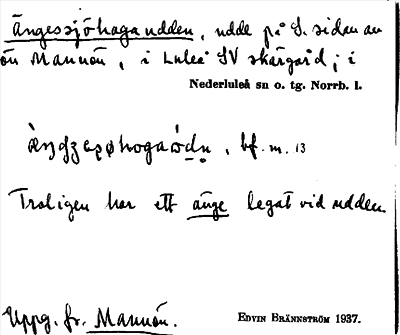 Ängessjöhagaudden, udde på S. sidan av
ön Mannön, i Luleå SV skärgård; i
Nederluleå sn o. tg. Norrb. l.
bf. m. 13
Troligen har ett änge legat vid udden.
Uppg. fr. Mannön.
Edvin Brännström 1937.